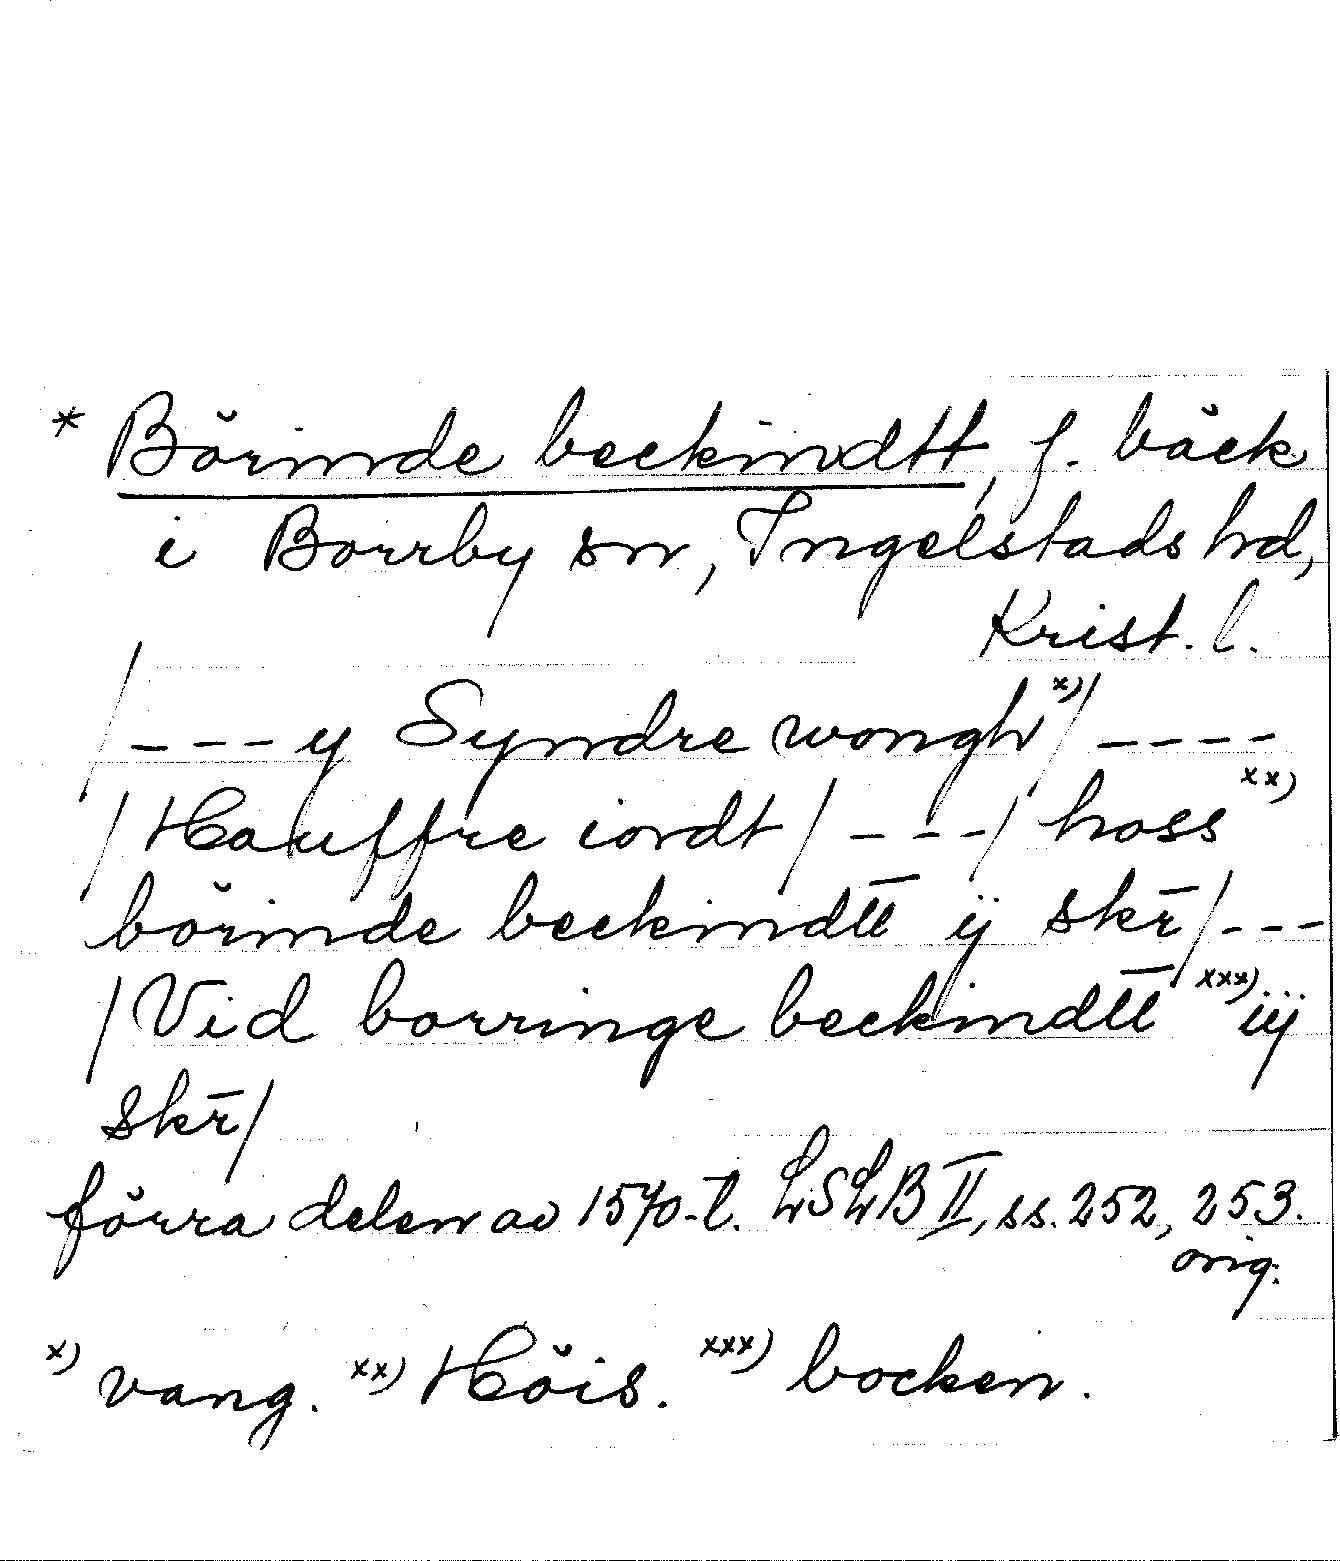 * Börinde beckindtt, f. bäck
i Borrby sn, Ingelstads hd,
Krist. l.
/---y Syndre wongh x)/----
/Hauffre iordt/---/hoss xx)
börinde beckindtt̅ ij skr̅/---
/Vid borringe beckindtt̅ xxx) iij
skr̅/
förra delen av 1570-t. LSLB II, ss. 252, 253.
orig.
x) vang. xx) Höis. xxx) bocken.